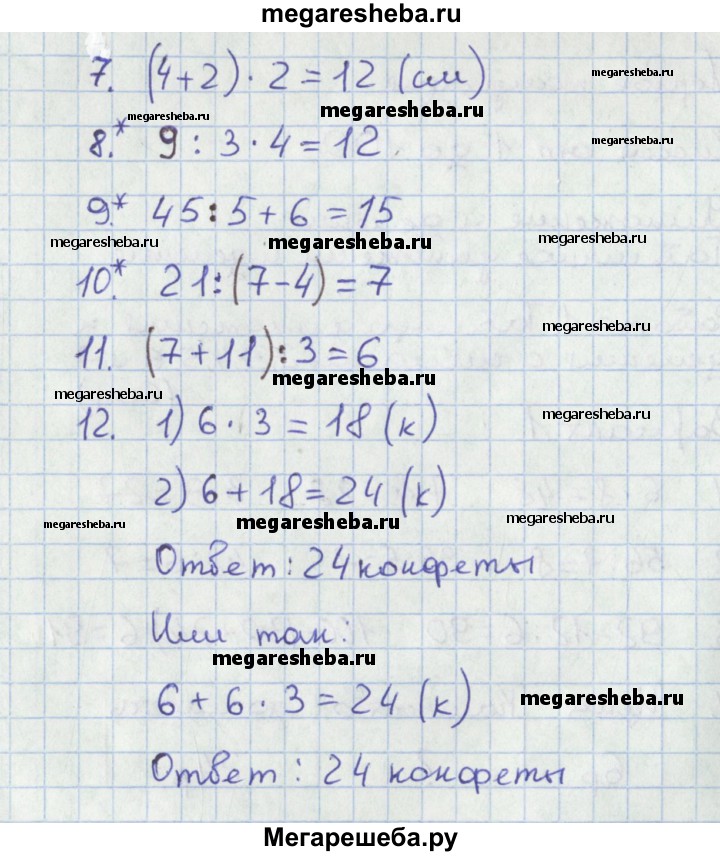 megaresheba.ru
7. (4+2) · 2 = 12 (см)
megaresheba.ru
megaresheba.ru
megaresheba.ru
8.* 9 : 3 · 4 = 12
megaresheba.ru
9.* 45 : 5 + 6 = 15
megaresheba.ru
megaresheba.ru
megaresheba.ru
10.* 21 : (7-4) = 7
megaresheba.ru
11. (7 + 11) : 3 = 6
megaresheba.ru
megaresheba.ru
megaresheba.ru
12. 1) 6 · 3 = 18 (к)
2) 6 + 18 = 24 (к)
megaresheba.ru
megaresheba.ru
megaresheba.ru
Ответ : 24 конфеты
Или так :
megaresheba.ru
6 + 6 · 3 = 24 (к)
megaresheba.ru
Ответ : 24 конфеты
Мегарешеба.ру